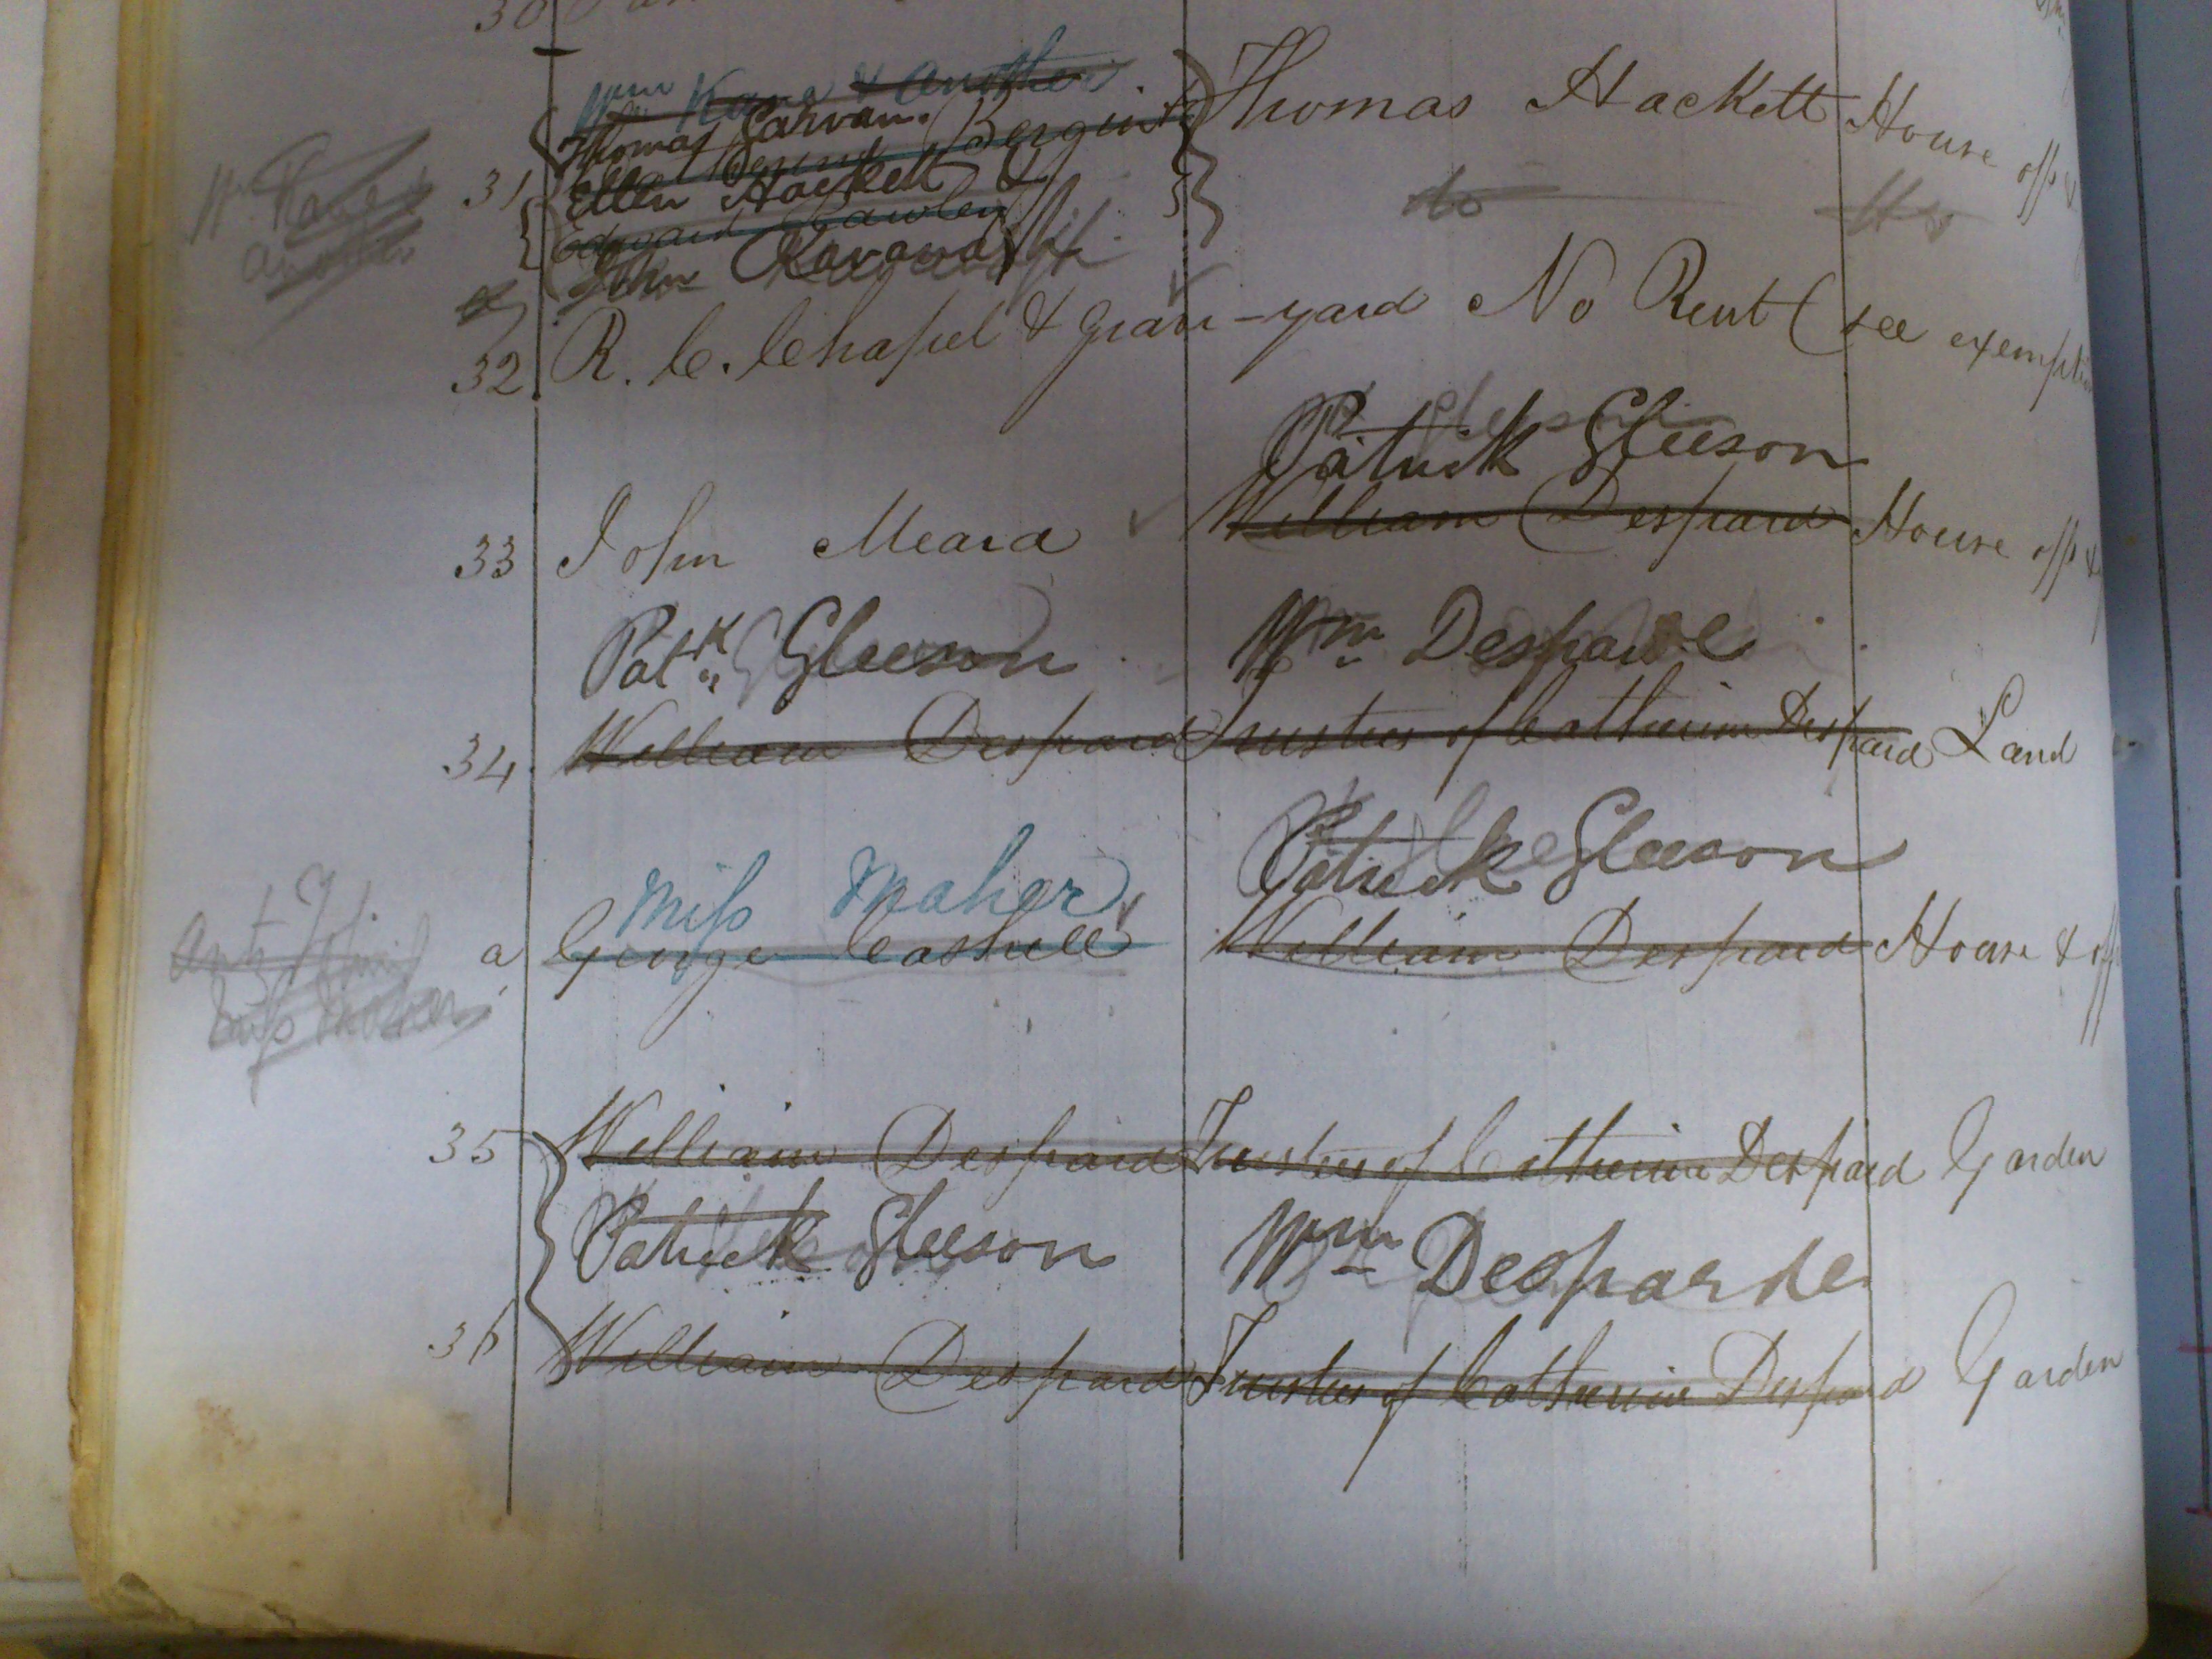 30
Wm Kane & Another
Thomas Garvan.
Denis Bergin Thomas Hackett House offs &
Wm. Kane &
Another
31 Ellen Hackett do do
Edward Cawley
John Kavanagh
32 R. C. Chapel & Grave-yard No Rent (see exemption
Patrick Gleeson
33 John Meara William Despard House offs &
Patk Gleeson Wm Desparde
34 William Despard Trustees of Catherine Despard Land
Miss Maher Patrick Gleeson
a George Cashell William Despard House & off
Miss Maher
35 William Despard Trustees of Catherine Despard Garden
Patrick Gleeson Wm Desparde
36 William Despard Trustees of Catherine Despard Garden